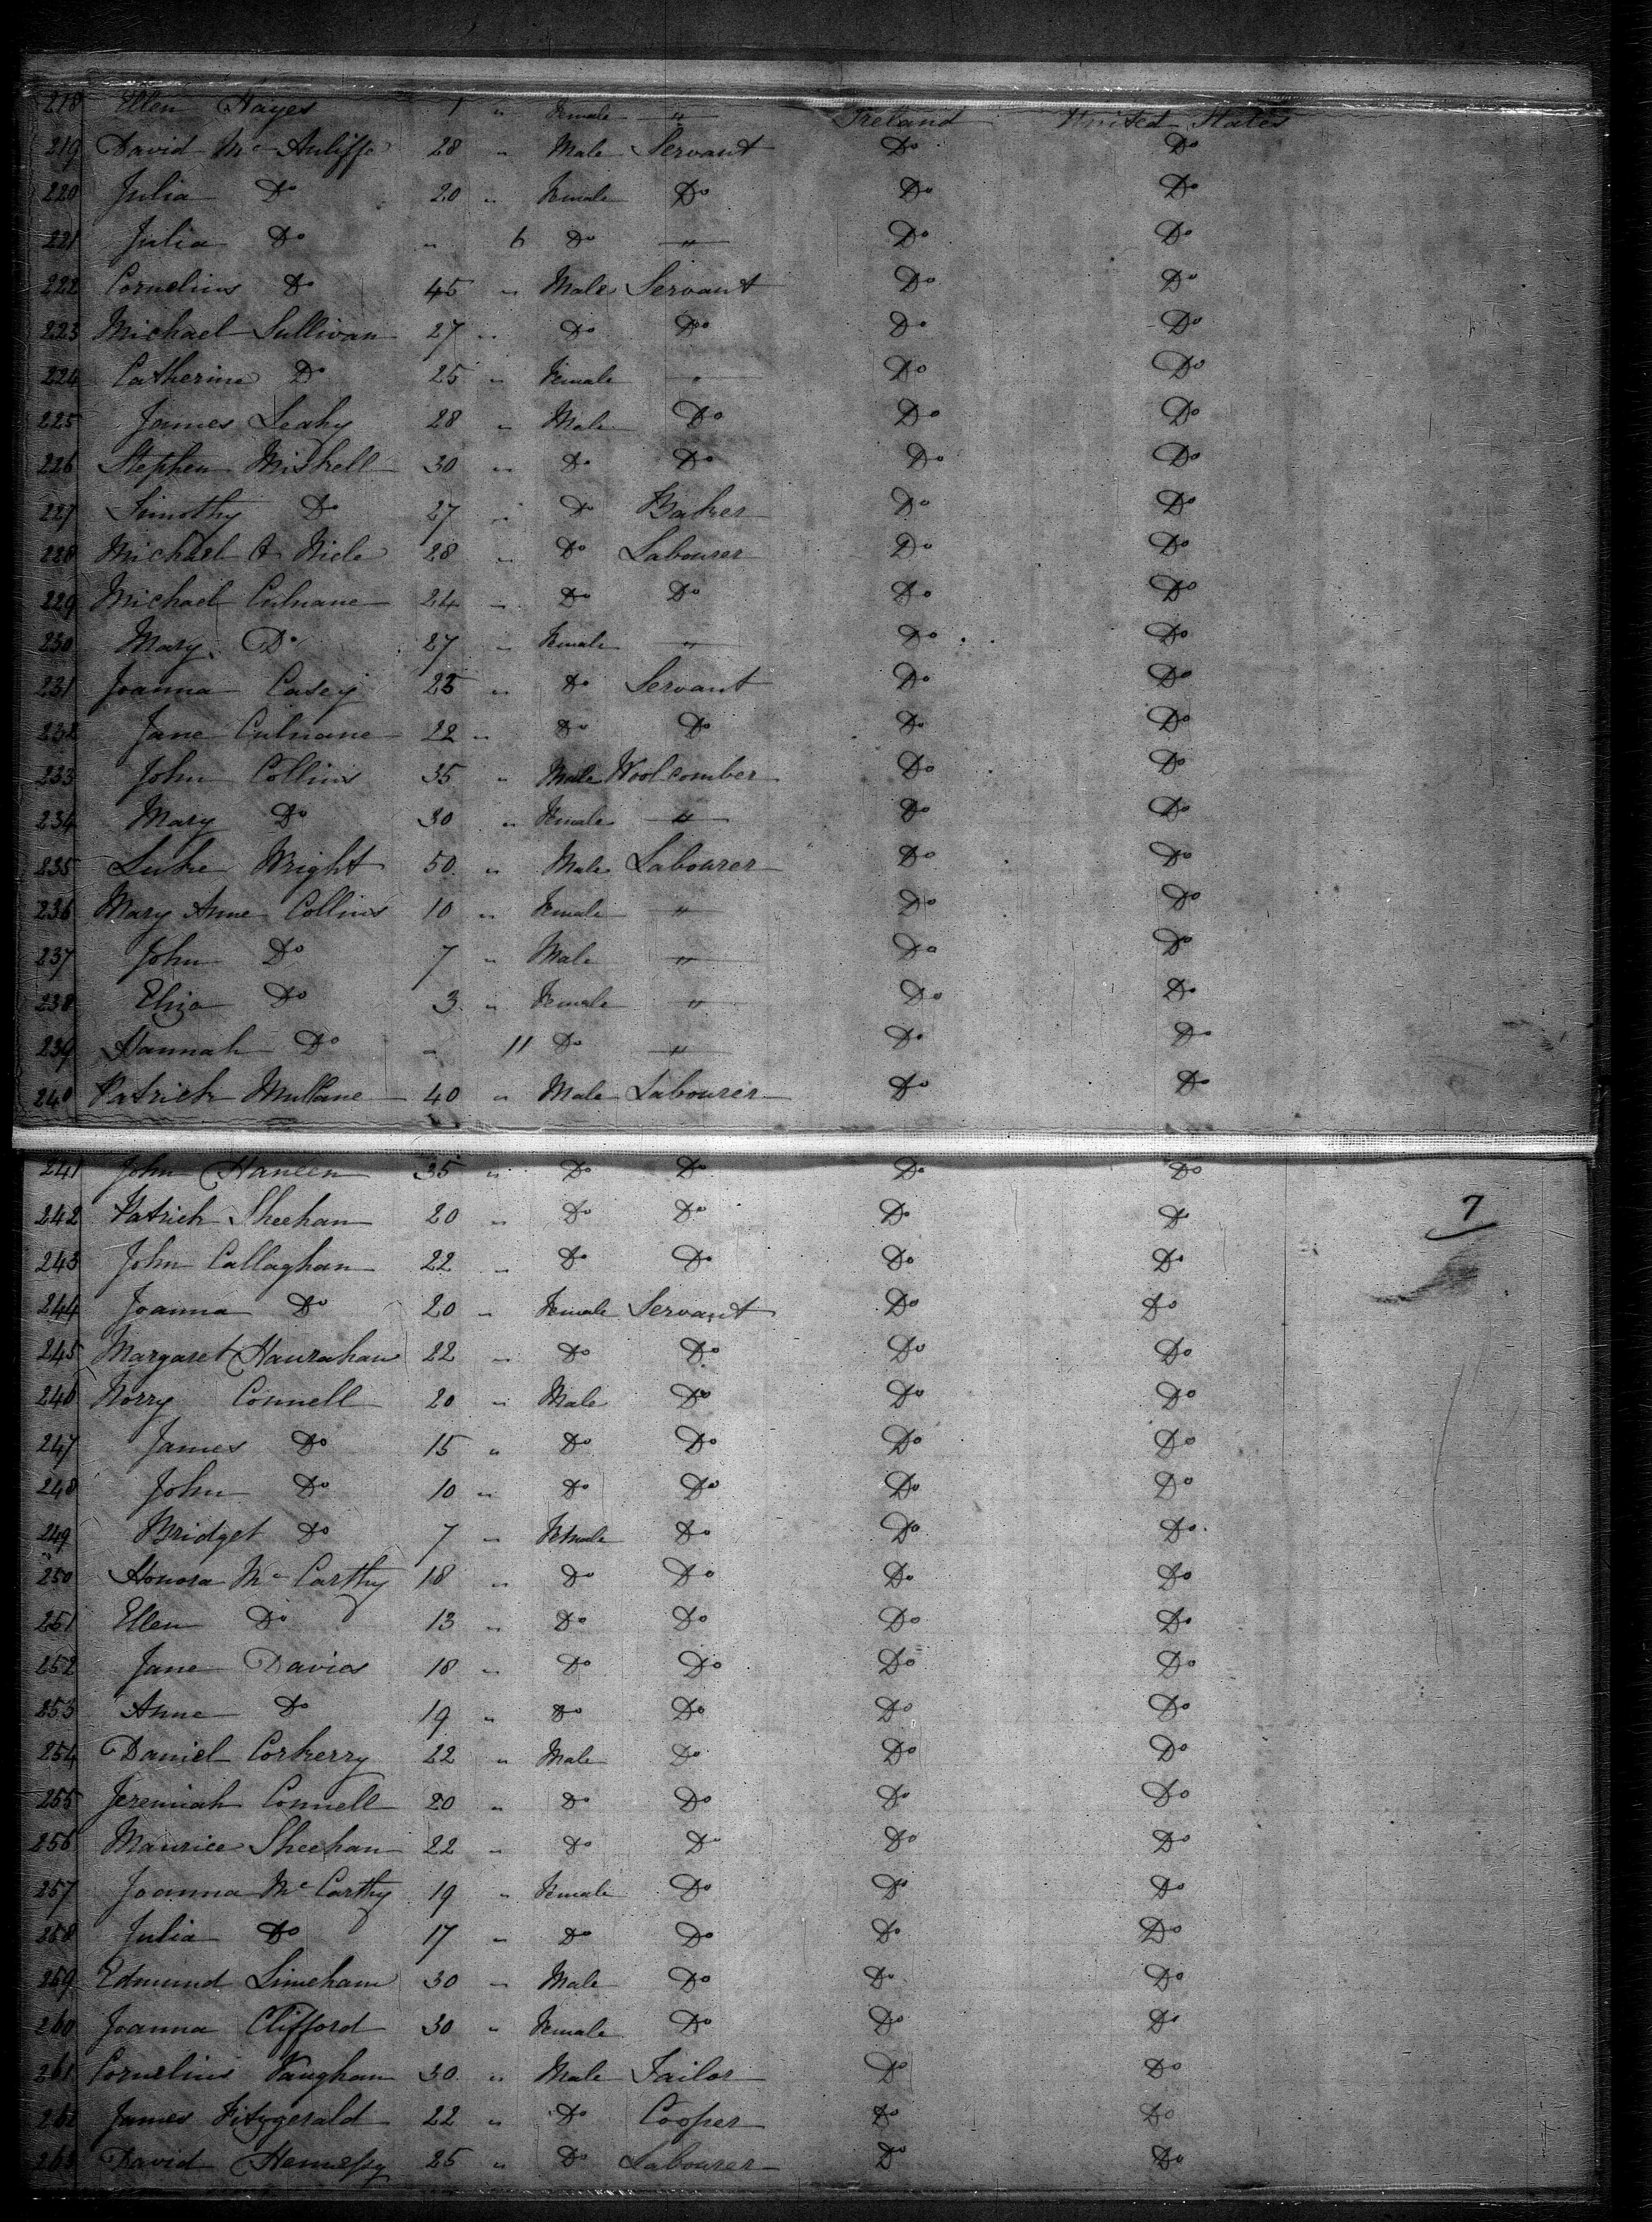 218 Ellen Hayes 1 " Female " Ireland United States
219 David Mc Auliffe 28 " Male Servant Do Do
220 Julia Do 20 " Female Do Do Do
221 Julia Do " 6 Do " Do Do
222 Cornelius Do 45 " Male Servant Do Do
223 Michael Sullivan 27 " Do Do Do Do
224 Catherine Do 25 " Female " Do Do
225 James Leahy 28 " Male Do Do Do
226 Stephen Miskell 30 " Do Do Do Do
227 Timothy Do 27 " Do Baker Do Do
228 Michael 28 " Do Labourer Do Do
229 Michael Culnane 24 " Do Do Do Do
230 Mary Do 27 " Female " Do Do
231 Joanna Casey 23 " Do Servant Do Do
232 Jane Culnane 22 " Do Do Do Do
233 John Collins 35 " Male Woolcomber Do Do
234 Mary Do 30 " Female " Do Do
235 Luke Wright 50 " Male Labourer Do Do
236 Mary Anne Collins 10 " Female " Do Do
237 John Do 7 " Male " Do Do
238 Eliza Do 3 " Female " Do Do
239 Hannah Do " 11 Do " Do Do
240 Patrick Mullane 40 " Male Labourer Do Do
241 John Haneen 35 " Do Do Do Do
242 Patrick Sheehan 20 " Do Do Do Do 7
243 John Callaghan 22 " Do Do Do Do
244 Joanna Do 20 " Female Servant Do Do
245 Margaret Hanrahan 22 " Do Do Do Do
246 Norry Connell 20 " Male Do Do Do
247 James Do 15 " Do Do Do Do
248 John Do 10 " Do Do Do Do
249 Bridget Do 7 " Female Do Do Do
250 Honora Mc Carthy 18 " Do Do Do Do
251 Ellen Do 13 " Do Do Do Do
252 Jane Davies 18 " Do Do Do Do
253 Anne Do 19 " Do Do Do Do
254 Daniel Corkerry 22 " Male Do Do Do
255 Jeremiah Connell 20 " Do Do Do Do
256 Maurice Sheehan 22 " Do Do Do Do
257 Joanna Mc Carthy 19 " Female Do Do Do
258 Julia Do 17 " Do Do Do Do
259 Edmund Lineham 30 " Male Do Do Do
260 Joanna Clifford 30 " Female Do Do Do
261 Cornelius Vaughan 30 " Male Tailor Do Do
262 James Fitzgerald 22 " Do Cooper Do Do
263 David Hennessy 25 " Do Labourer Do Do